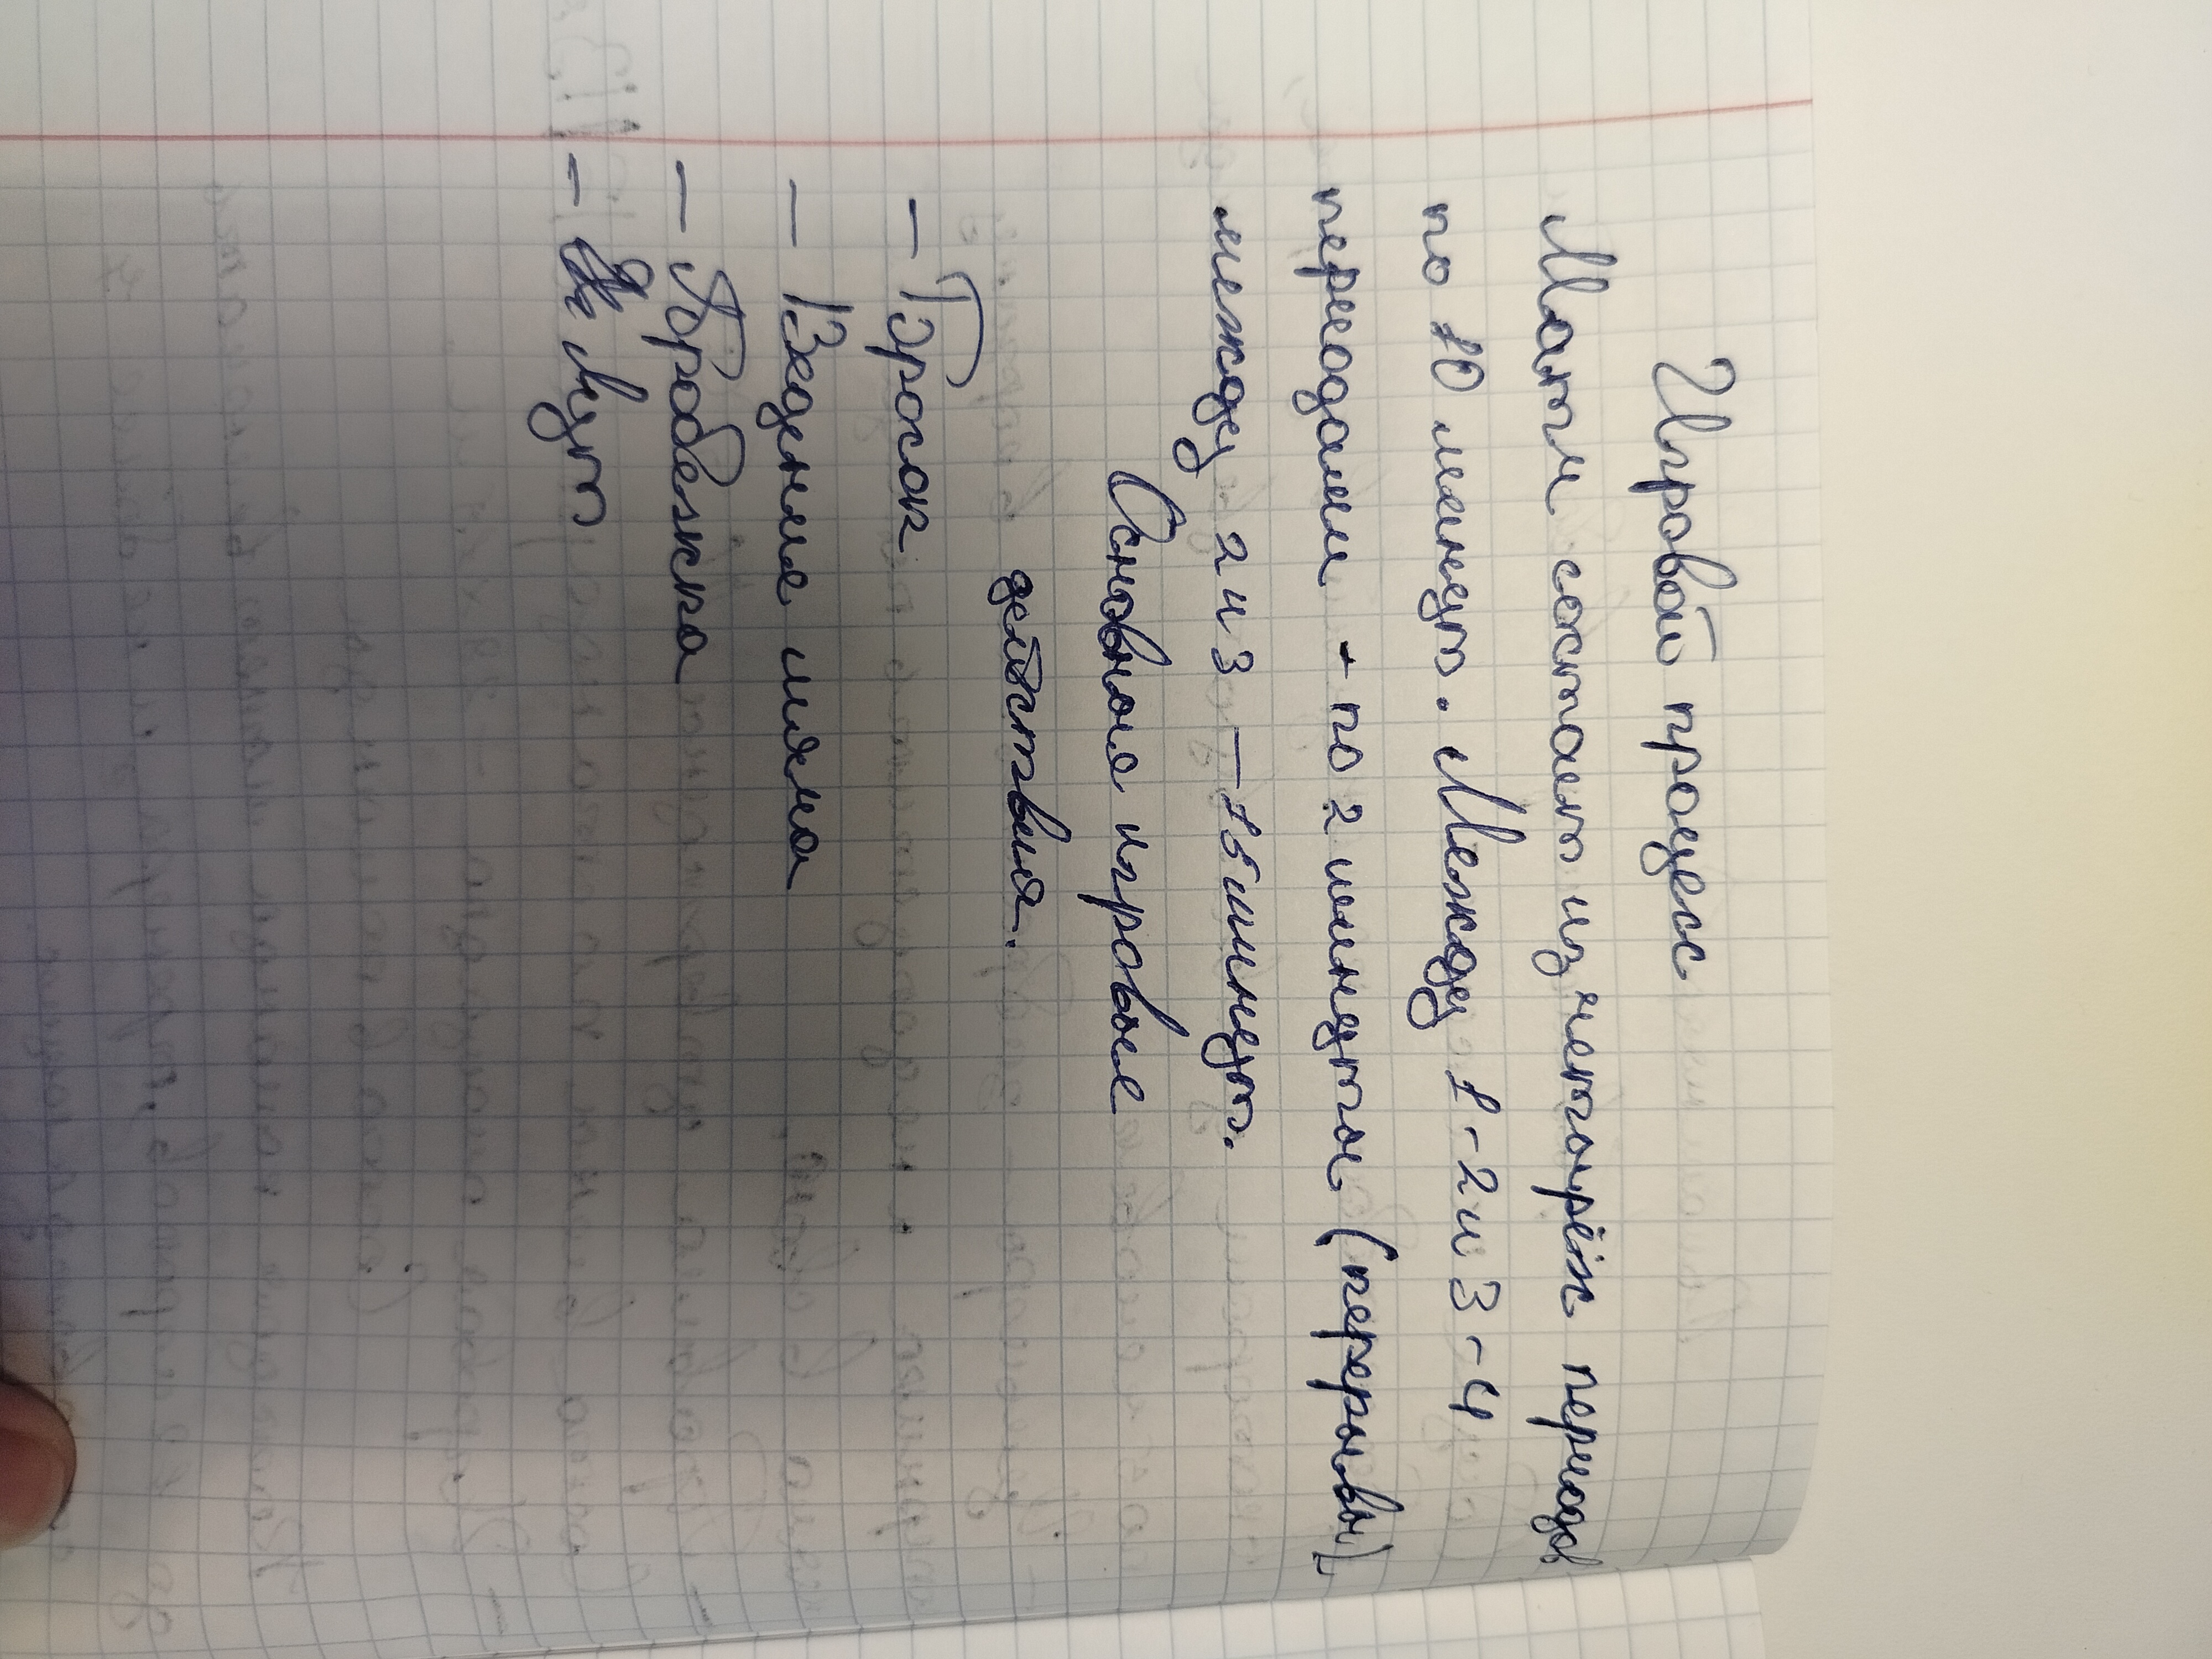 Игровой процесс
Матч состоит из четырёх периодов
по 10 минут. Между 1-2 и 3-4
периодами - по 2 минуты (перерывы),
между 2 и 3 - 15 минут.
Основные игровые
действия.
- Бросок
- Ведение мяча
- Пробежка
- Аут